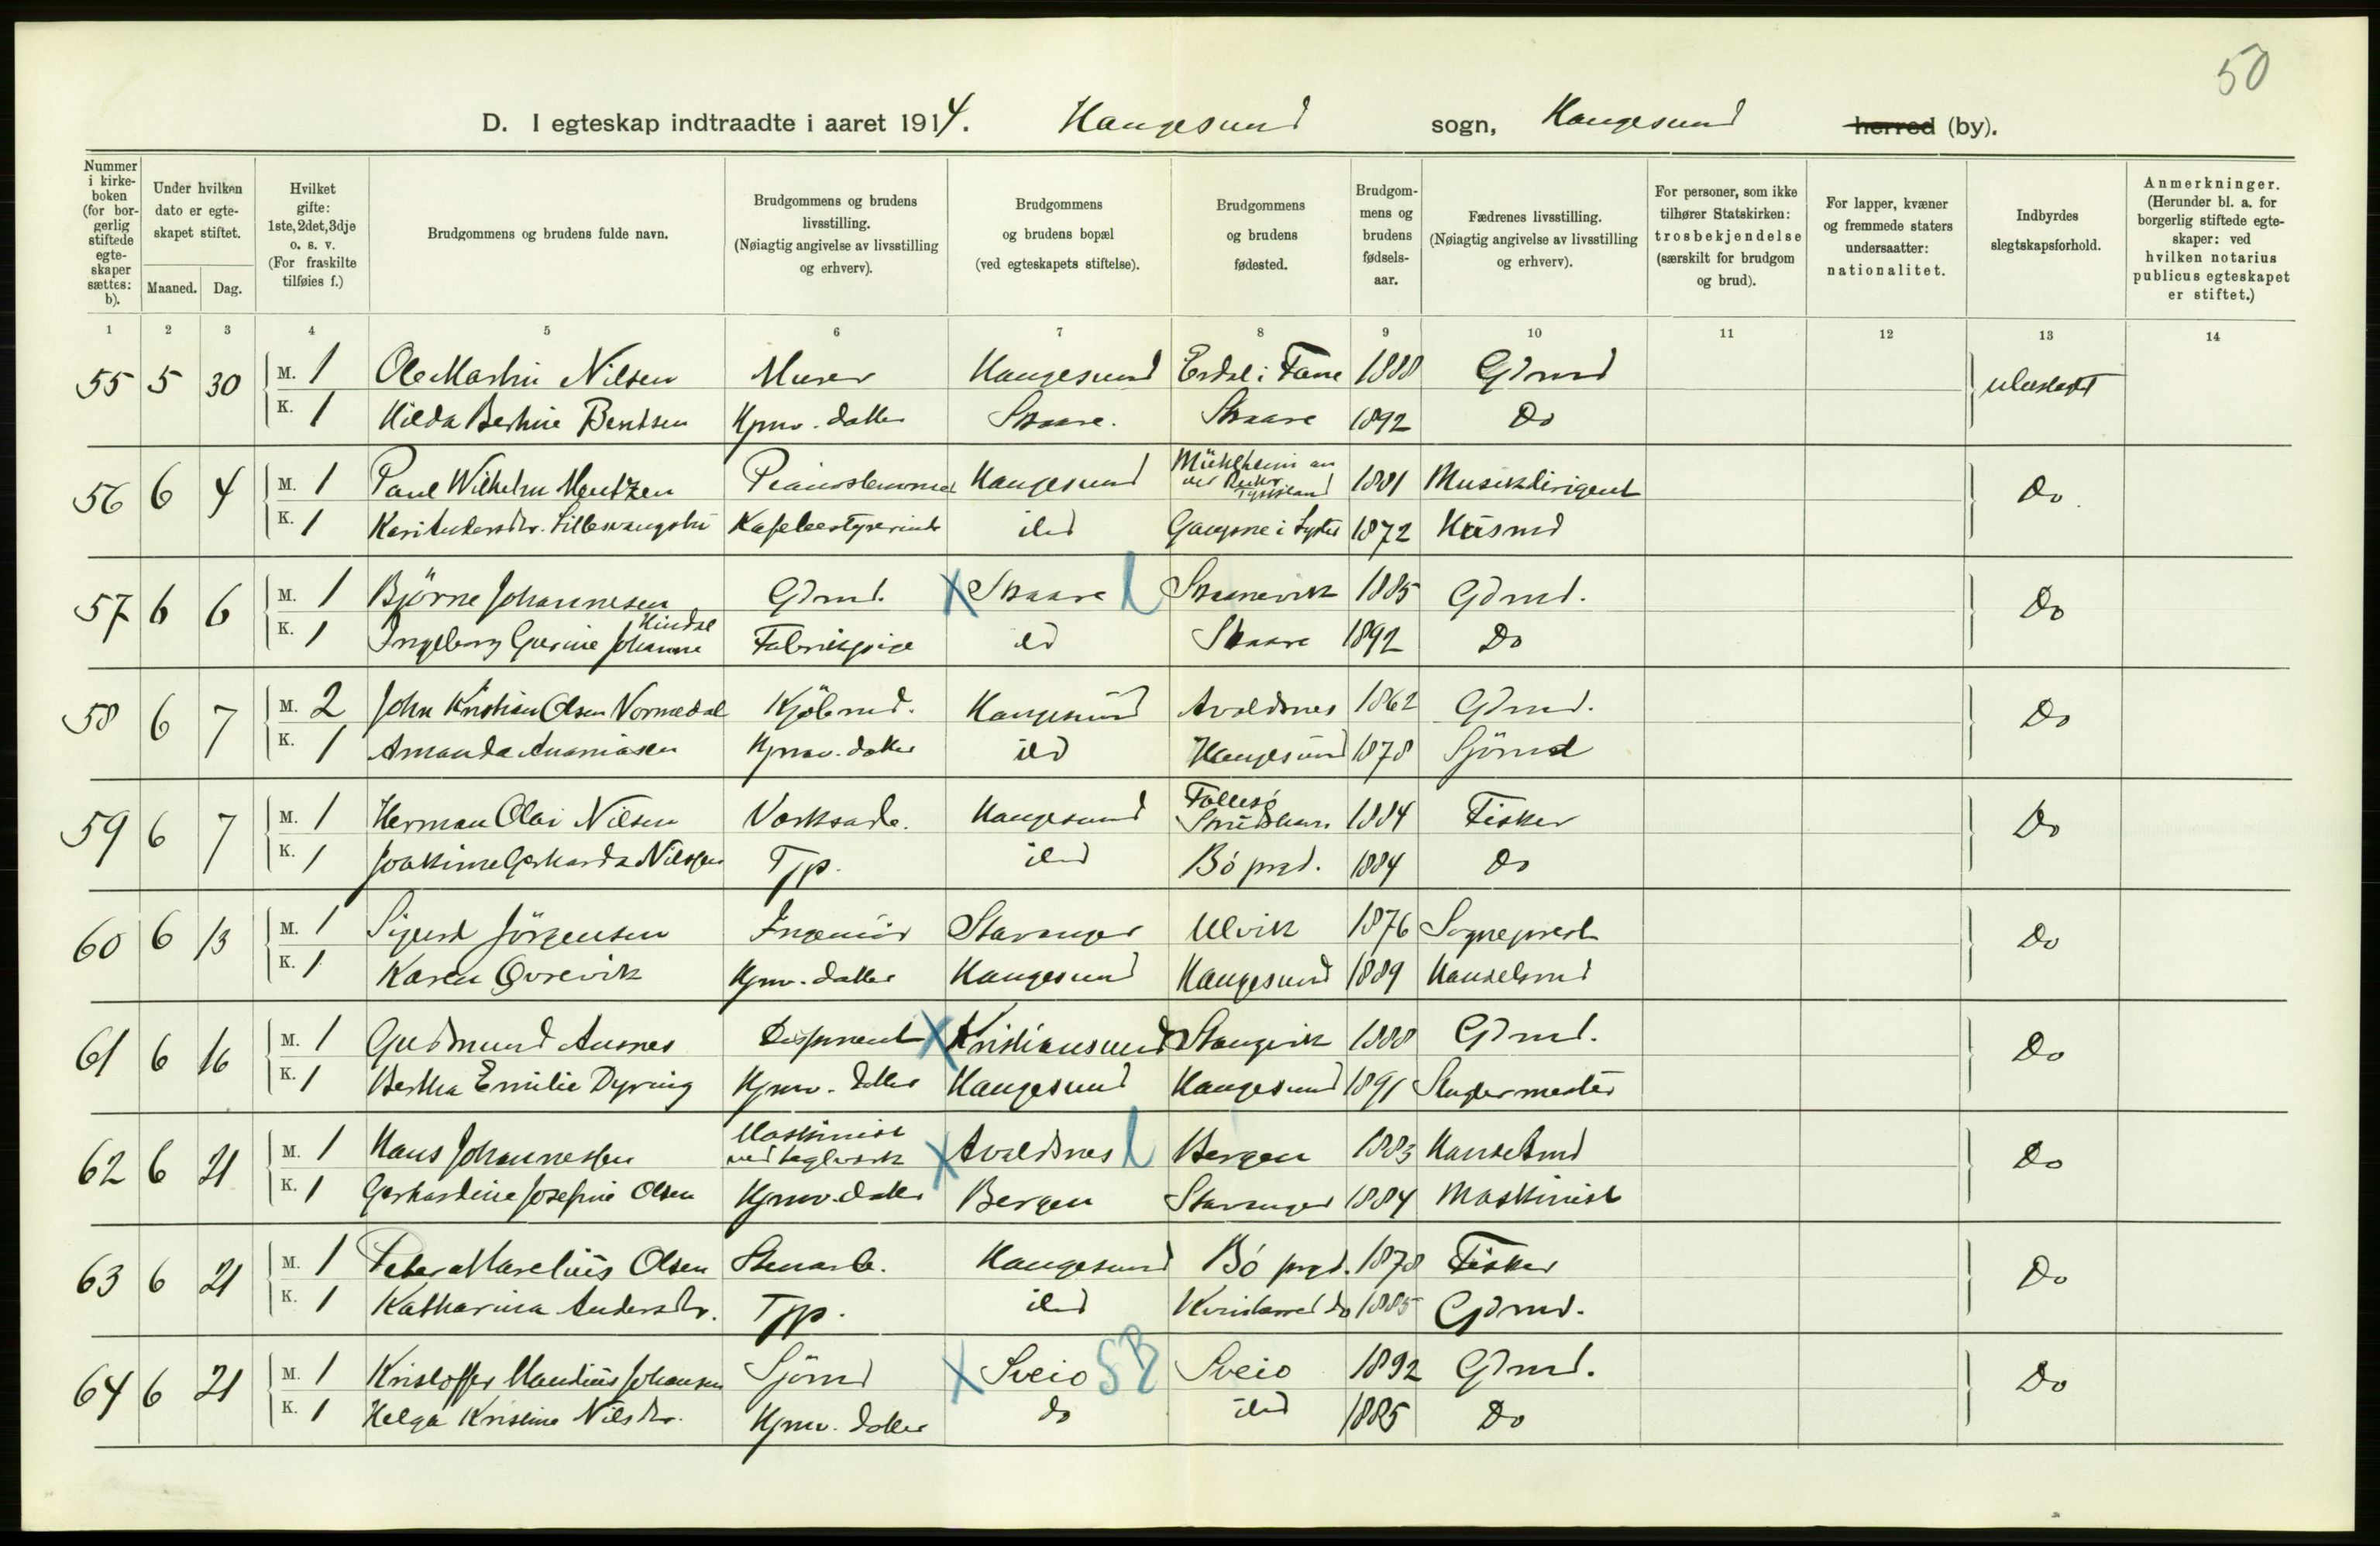 50
D. I egteskap indtraadte i aaret 1914. Haugesund sogn, Haugesund herred (by).
Nummer i kirkeboken (for borgerlig stiftede egteskaper sættes: b).
Under hvilken dato er egteskapet stiftet.
Maaned. Dag.
Hvilket gifte: 1ste, 2det, 3dje o. s. v. (For fraskilte tilføies f.)
Brudgommens og brudens fulde navn.
Brudgommens og brudens livsstilling. (Nøiagtig angivelse av livsstilling og erhverv).
Brudgommens og brudens bopæl (ved egteskapets stiftelse).
Brudgommens og brudens fødested.
Brudgommens og brudens fødselsaar.
Fædrenes livsstilling. (Nøiagtig angivelse av livsstilling og erhverv).
For personer, som ikke tilhører Statskirken: trosbekjendelse (særskilt for brudgom og brud).
For lapper, kvæner og fremmede staters undersaatter: nationalitet.
Indbyrdes slegtskapsforhold.
Anmerkninger. (Herunder bl. a. for borgerlig stiftede egteskaper: ved hvilken notarius publicus egteskapet er stiftet.)
1 2 3 4 5 6 7 8 9 10 11 12 13 14
55 5 30 M. 1 Ole Martin Nilsen Murer Haugesund Erdal i Fane 1888 Gdmd ubeslegtet
K. 1 Hilda Bertine Bentsen Hjmv. datter Skaare. Skaare 1892 Do
56 6 4 M. 1 Paul Wilhelm Mentzen Pianostemmer Haugesund Mühlheim an der Ruhr Tyskland 1881 Musikdirigent Do.
K. 1 Kari Andersdtr. Kafebestyrerinde ibid i Lyster 1872 Husmd
57 6 6 M. 1 Björne Johannesen Gdmd. X Skaare Skaanevik 1885 Gdmd. Do
K. 1 Ingeborg Gurine Johanne Hindal Fabrikpige ibd Skaare 1892 Do
58 6 7 M. 2 John Kristian Olsen Normedal Kjöbmd. Haugesund Avaldsnes 1862 Gdmd. Do
K. 1 Amanda Ananiasen Hjmv. datter ibd Haugesund 1878 Sjömd
59 6 7 M. 1 Herman Olai Nilsen Verksarb. Haugesund 1884 Fisker Do
K. 1 Joakime Gerharda Nilssen Tjp. ibid Bö prgd. 1884 Do
60 6 13 M. 1 Sigurd Jörgensen Ingeniör Stavanger Ulvik 1876 Sogneprest Do
K. 1 Karen Qvrevik Hjmv. datter Haugesund Haugesund 1889 Handelsmd
61 6 16 M. 1 Gudmund Ausnes Disponent X Kristiansund Stangvik 1888 Gdmd. Do
K. 1 Bertha Emilie Dyring Hjmv. datter Haugesund Haugesund 1891
62 6 21 M. 1 Hans Johannessen Maskinist ved teglverk X Avaldsnes Bergen 1883 Handelsmd Do
K. 1 Gerhardine Josefine Olsen Hjmv. datter Bergen Stavanger 1884 Maskinist
63 6 21 M. 1 Peter Marelius Olsen Stenarb. Haugesund Bö prgd. 1878 Fisker Do
K. 1 Katharina Andersdtr. Tjp. ibid do 1885 Gdmd.
64 6 21 M. 1 Kristoffer Maudius Johansen Sjömd X Sveio Sveio 1892 Gdmd. Do
K. 1 Helga Kristine Nilsdtr. Hjmv. datter do ibid 1885 Do